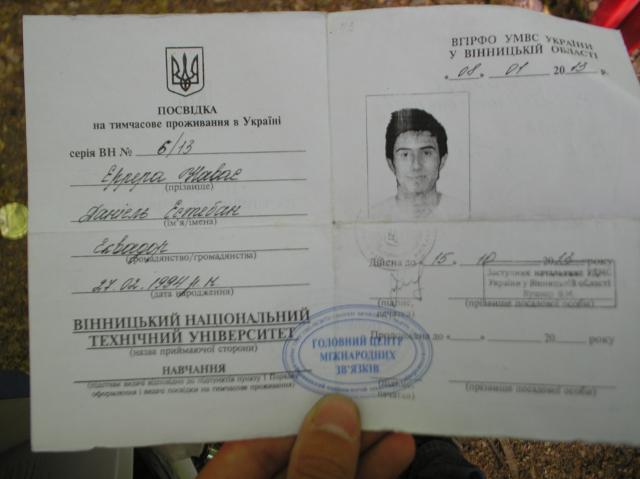 ПОСВІДКА
на тимчасове проживання в Україні
серія ВН № 6/13
Еррера
(прізвище)
Даніель Естебан
(ім'я/імена)
Еквадор
(громадянство/громадянства)
27.02.1994 р.н
(дата народження)
ВІННИЦЬКИЙ НАЦІОНАЛЬНИЙ
ТЕХНІЧНИЙ УНІВЕРСИТЕТ
(назва приймаючої сторони)
НАВЧАННЯ
(підстави видачі відповідно до підпункту пункту 1 Порядку
оформлення і видачі посвідки на тимчасове проживання)
ВГІРФО УМВС УКРАЇНИ
У ВІННИЦЬКІЙ ОБЛАСТІ
" 08 " 01 2013 р.
Дійсна до " 15 " 10 2013 року
Заступник начальника
України у Вінницькій області
(підпис,
печатка)
(прізвище посадової особи)
до " " 20 року
ГОЛОВНИЙ ЦЕНТР
МІЖНАРОДНИХ
ЗВ'ЯЗКІВ
печатка)
(прізвище посадової особи)